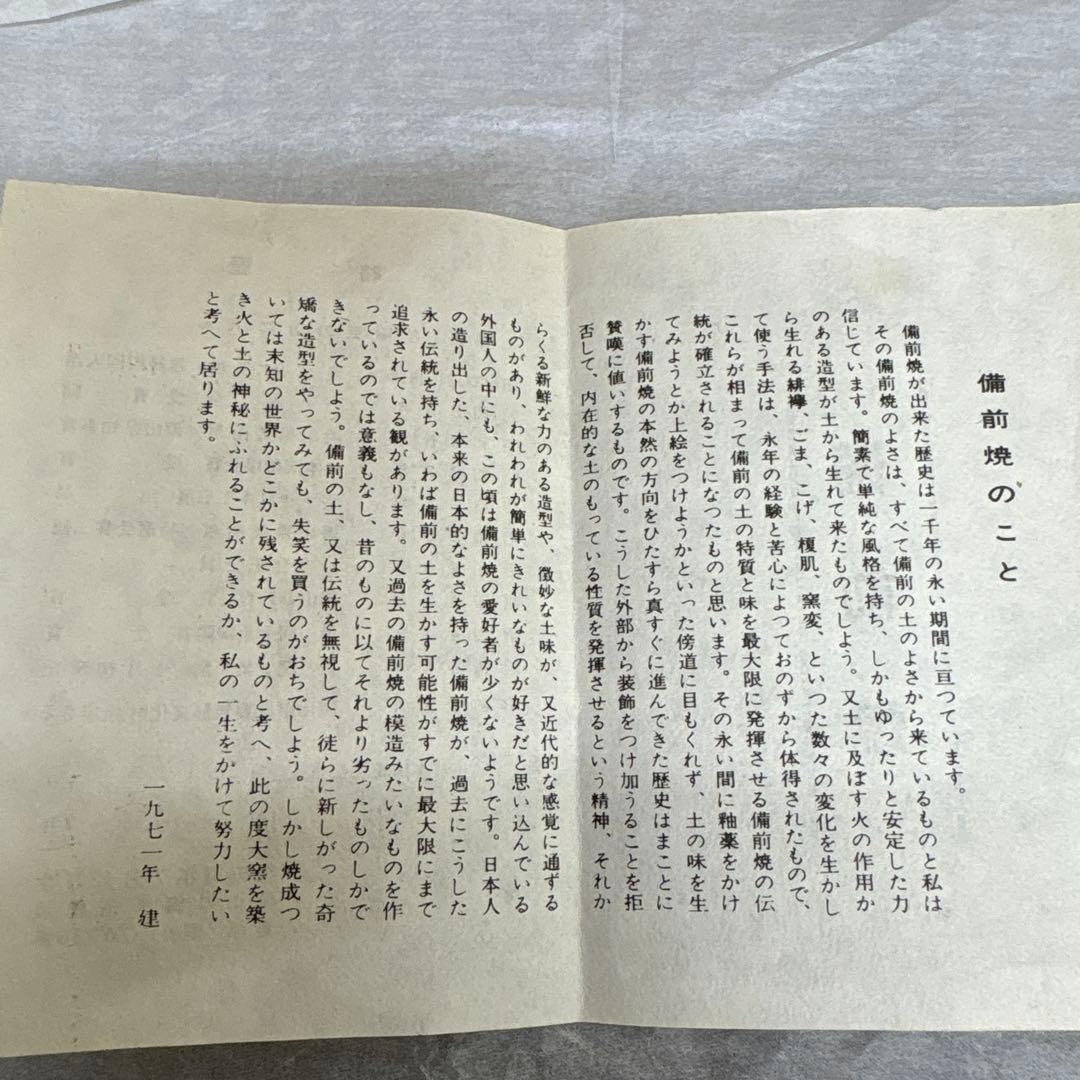 備前焼のこと
備前焼が出来た歴史は一千年の永い期間に亘つています。
その備前焼のよさは、すべて備前の土のよさから来ているものと私は
信じています。簡素で単純な風格を持ち、しかもゆったりと安定した力
のある造型が土から生れて来たものでしよう。又土に及ぼす火の作用か
ら生れる緋襷、ごま、こげ、榎肌、窯変、といった数々の変化を生かし
て使う手法は、永年の経験と苦心によつておのずから体得されたもので、
これらが相まって備前の土の特質と味を最大限に発揮させる備前焼の伝
統が確立されることになつたものと思います。その永い間に釉薬をかけ
てみようとか上絵をつけようかといった傍道に目もくれず、土の味を生
かす備前焼の本然の方向をひたすら真すぐに進んできた歴史はまことに
賛嘆に値いするものです。こうした外部から装飾をつけ加うることを拒
否して、内在的な土のもっている性質を発揮させるという精神、それか
らくる新鮮な力のある造型や、微妙な土味が、又近代的な感覚に通ずる
ものがあり、われわれが簡単にきれいなものが好きだと思い込んでいる
外国人の中にも、この頃は備前焼の愛好者が少くないようです。日本人
の造り出した、本来の日本的なよさを持った備前焼が、過去にこうした
永い伝統を持ち、いわば備前の土を生かす可能性がすでに最大限にまで
追求されている観があります。又過去の備前焼の模造みたいなものを作
っているのでは意義もなし、昔のものに以てそれより劣ったものしかで
きないでしよう。備前の土、又は伝統を無視して、徒らに新しがった奇
矯な造型をやってみても、失笑を買うのがおちでしよう。しかし焼成つ
いては末知の世界かどこかに残されているものと考へ、此の度大窯を築
き火と土の神秘にふれることができるか、私の一生をかけて努力したい
と考へて居ります。
一九七一年　建